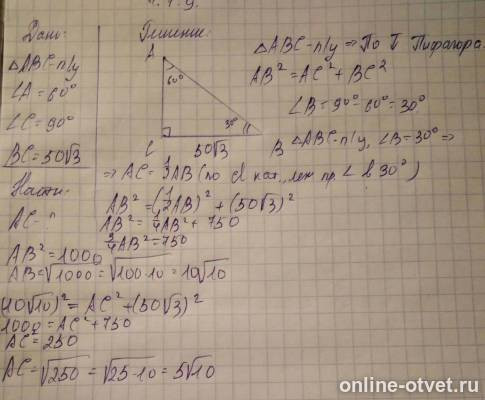 Дано:
△ABC-п/у
∠A=60°
∠C=90°
BC=50√3
Найти:
AC-?
Решение:
A
60°
30°
C
50√3
B
△ABC-п/у ⇒ По Т Пифагора
AB²=AC²+BC²
∠B=90°-60°=30°
△ABC-п/у, ∠B=30° ⇒
⇒ AC=½AB (по кат., леж пр ∠ в 30°)
AB²=(½AB)²+(50√3)²
AB²=¼AB²+750
¾AB²=750
AB²=1000
AB=√1000=√100·10=10√10
(10√10)²=AC²+(50√3)²
1000=AC²+750
AC²=250
AC=√250=√25·10=5√10
online-otvet.ru